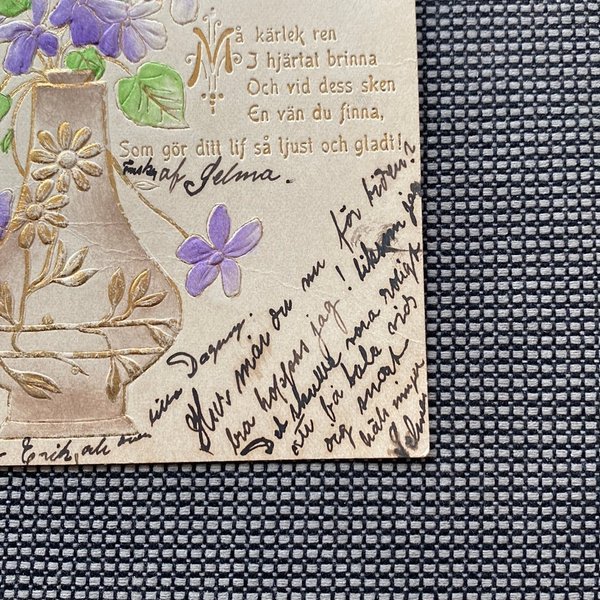 Må kärlek ren
I hjärtat brinna
Och vid dess sken
En vän du finna,
Som gör ditt lif så ljust och gladt!
önskar af Selma.
Hur mår du nu för tiden?
bra hoppas jag! liksom jag
Det skulle vara roligt
att få tala vid
dig snart
Erik, och
lilla Dagny.